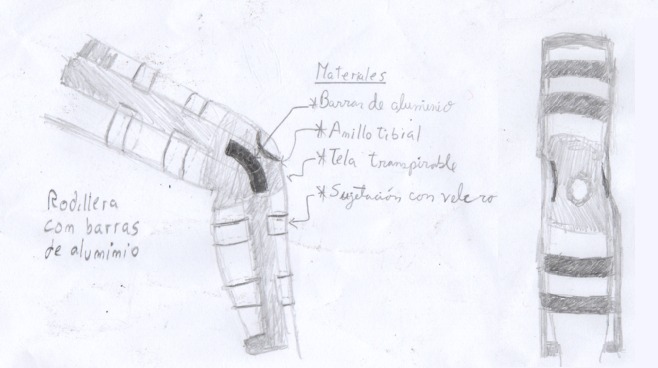 Materiales
*Barras de aluminio
*Anillo tibial
*Tela transpirable
*Sujetación con velcro
Rodillera
con barras
de aluminio